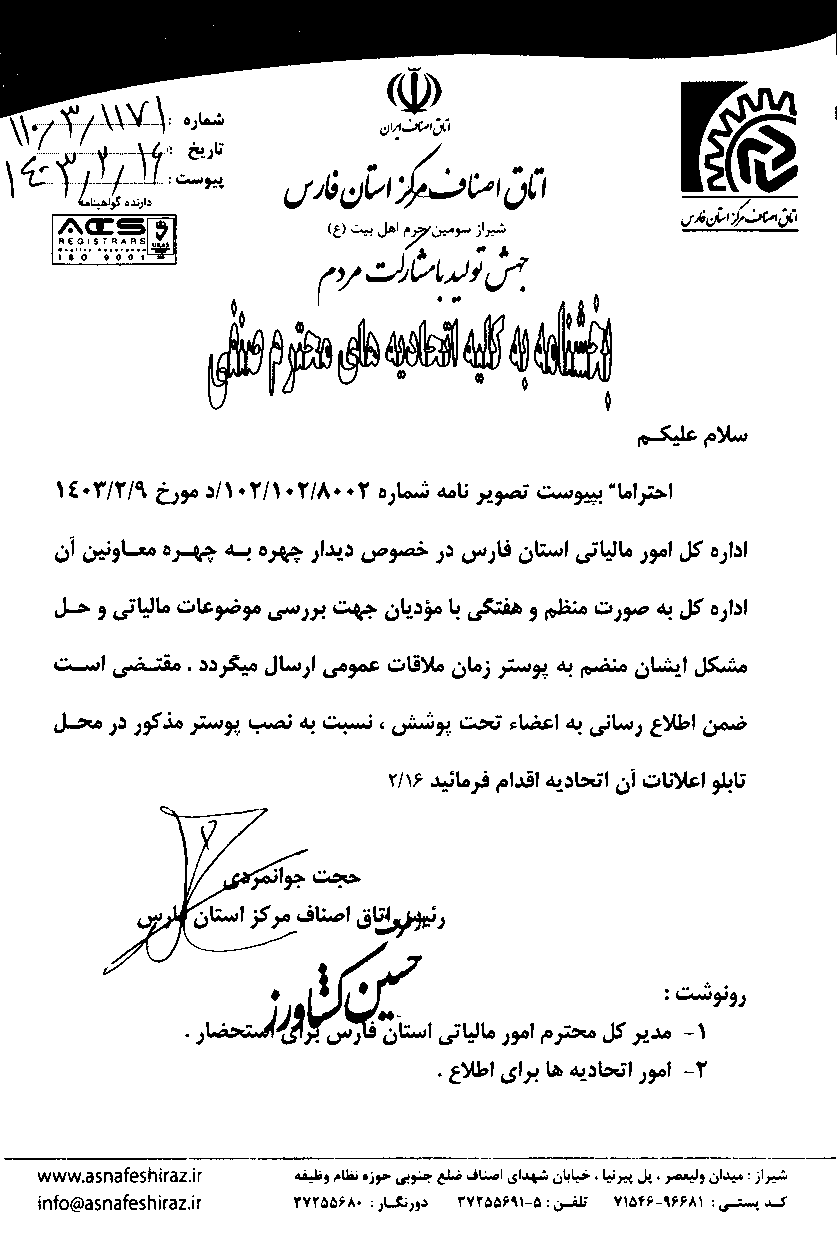 اتاق اصناف ایران
اتاق اصناف مرکز استان فارس
شیراز سومین حرم اهل بیت (ع)
جهش تولید با مشارکت مردم
شماره : ۱۱۰/۳/۱۱۷۱
تاریخ : ۱۴۰۳/۲/۱۶
پیوست :
دارنده گواهینامه
ACS
REGISTRARS
ISO 9001
اتاق اصناف مرکز استان فارس
بخشنامه به کلیه اتحادیه های محترم صنفی
سلام علیکم
احتراما" بپیوست تصویر نامه شماره ۱۰۲/۱۰۲/۸۰۰۲/د مورخ ۱۴۰۳/۲/۹
اداره کل امور مالیاتی استان فارس در خصوص دیدار چهره به چهره معاونین آن
اداره کل به صورت منظم و هفتگی با مؤدیان جهت بررسی موضوعات مالیاتی و حل
مشکل ایشان منضم به پوستر زمان ملاقات عمومی ارسال میگردد . مقتضی است
ضمن اطلاع رسانی به اعضاء تحت پوشش ، نسبت به نصب پوستر مذکور در محل
تابلو اعلانات آن اتحادیه اقدام فرمائید ۲/۱۶
حجت جوانمردی
رئیس اتاق اصناف مرکز استان فارس
از طرف
حسین کشاورز
رونوشت :
۱- مدیر کل محترم امور مالیاتی استان فارس برای استحضار .
۲- امور اتحادیه ها برای اطلاع .
شیراز : میدان ولیعصر ، پل پیرنیا ، خیابان شهدای اصناف ضلع جنوبی حوزه نظام وظیفه
کد پستی : ۷۱۵۴۶-۹۶۶۸۱ تلفن : ۵-۳۷۲۵۵۶۹۱ دورنگار : ۳۷۲۵۵۶۸۰
www.asnafeshiraz.ir
info@asnafeshiraz.ir